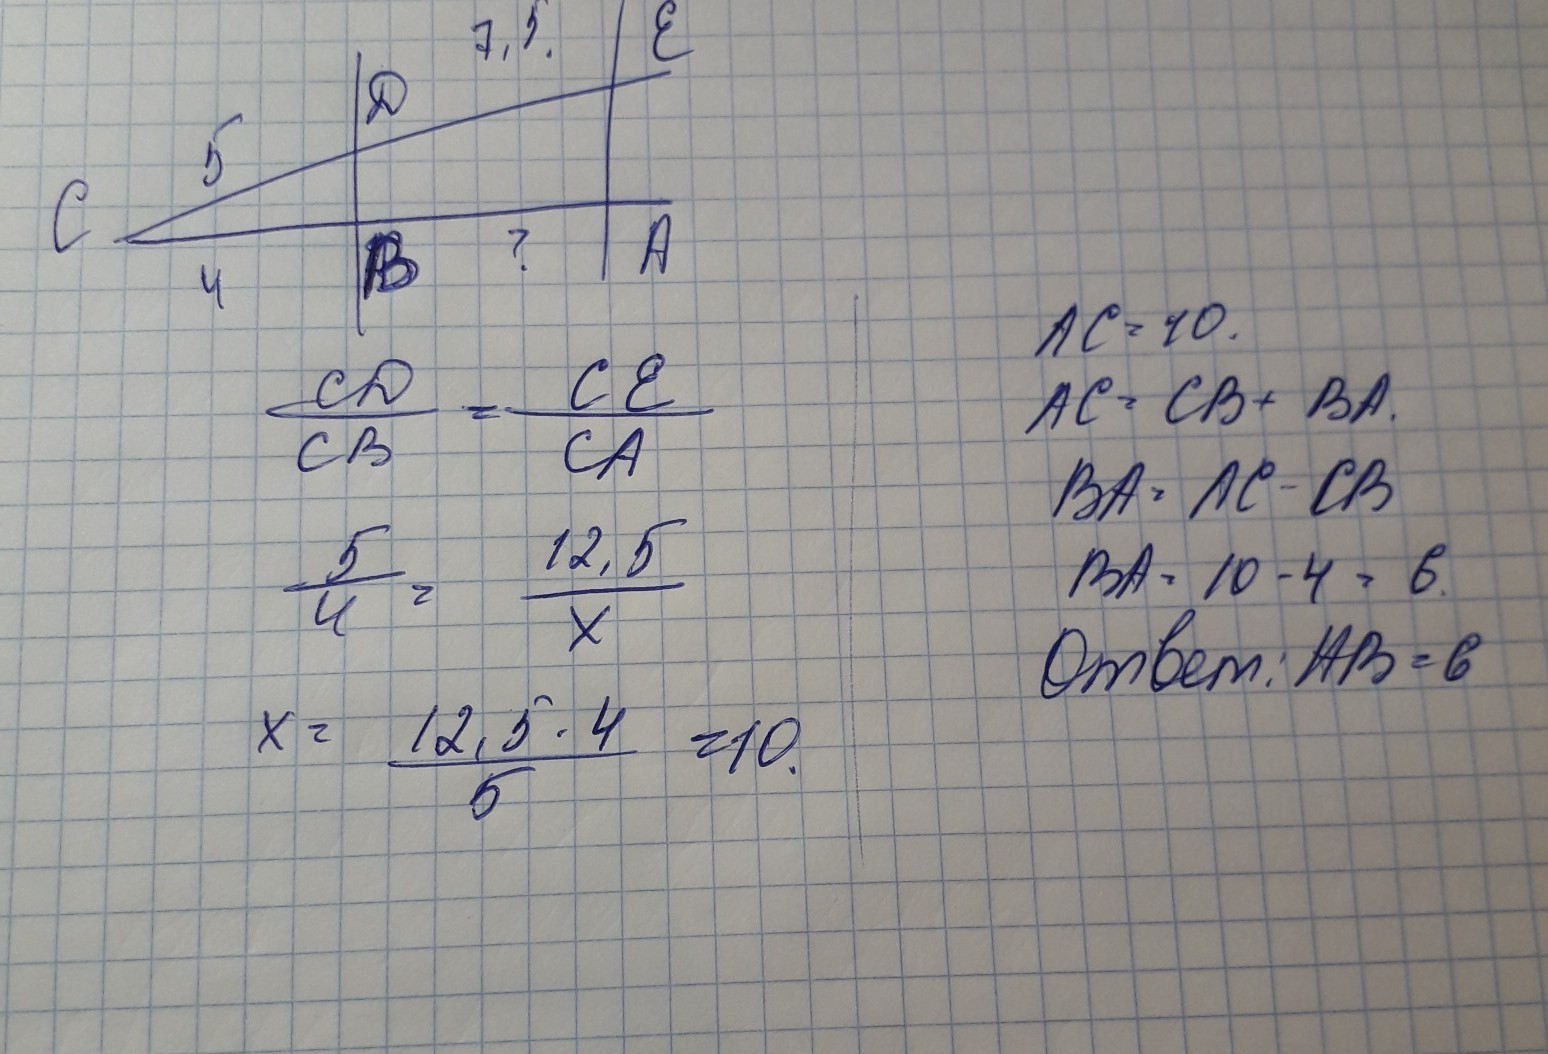 7,5.
E
D
5
C
B
?
A
4
CD/CB = CE/CA
5/4 = 12,5/x
x = 12,5·4/5 = 10.
AC = 10.
AC = CB + BA.
BA = AC - CB
BA = 10 - 4 = 6.
Ответ: AB = 6